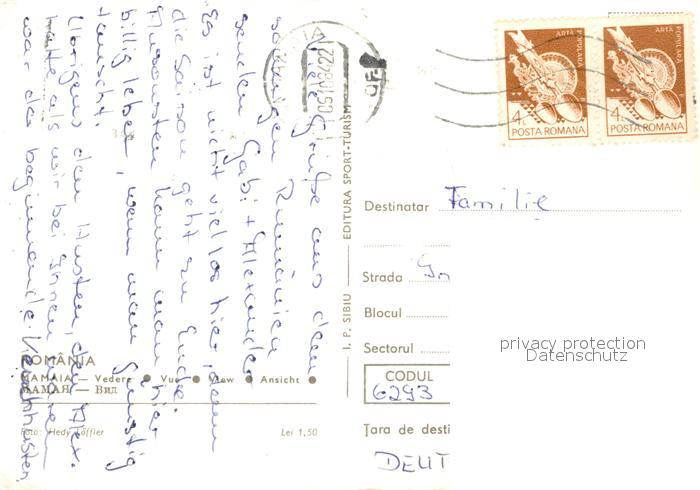 Viele Grüße aus dem
sonnigen Rumänien
senden Gabi + Alexander
Es ist nicht viel los hier, denn
die Saison geht zu Ende.
Ansonsten kann man hier
billig leben, wenn man günstig
tauscht.
Übrigens den Husten, den Alex.
hatte als wir bei Ihnen waren
war der beginnende Keuchhusten.
ROMÂNIA
MAMAIA — Vedere • Vue • View • Ansicht •
МАМАЯ — Вид
Foto: Hedy Löffler
Lei 1,50
I. P. SIBIU | EDITURA SPORT-TURISM
05108422
ARTA POPULARA
4L
POSTA ROMANA
ARTA POPULARA
4L
POSTA ROMANA
Destinatar Familie
Strada
Blocul
Sectorul
CODUL
6293
Țara de desti
DEUT
privacy protection
Datenschutz